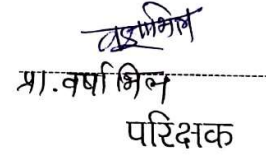 प्रा. वर्षा भिल
परिक्षक